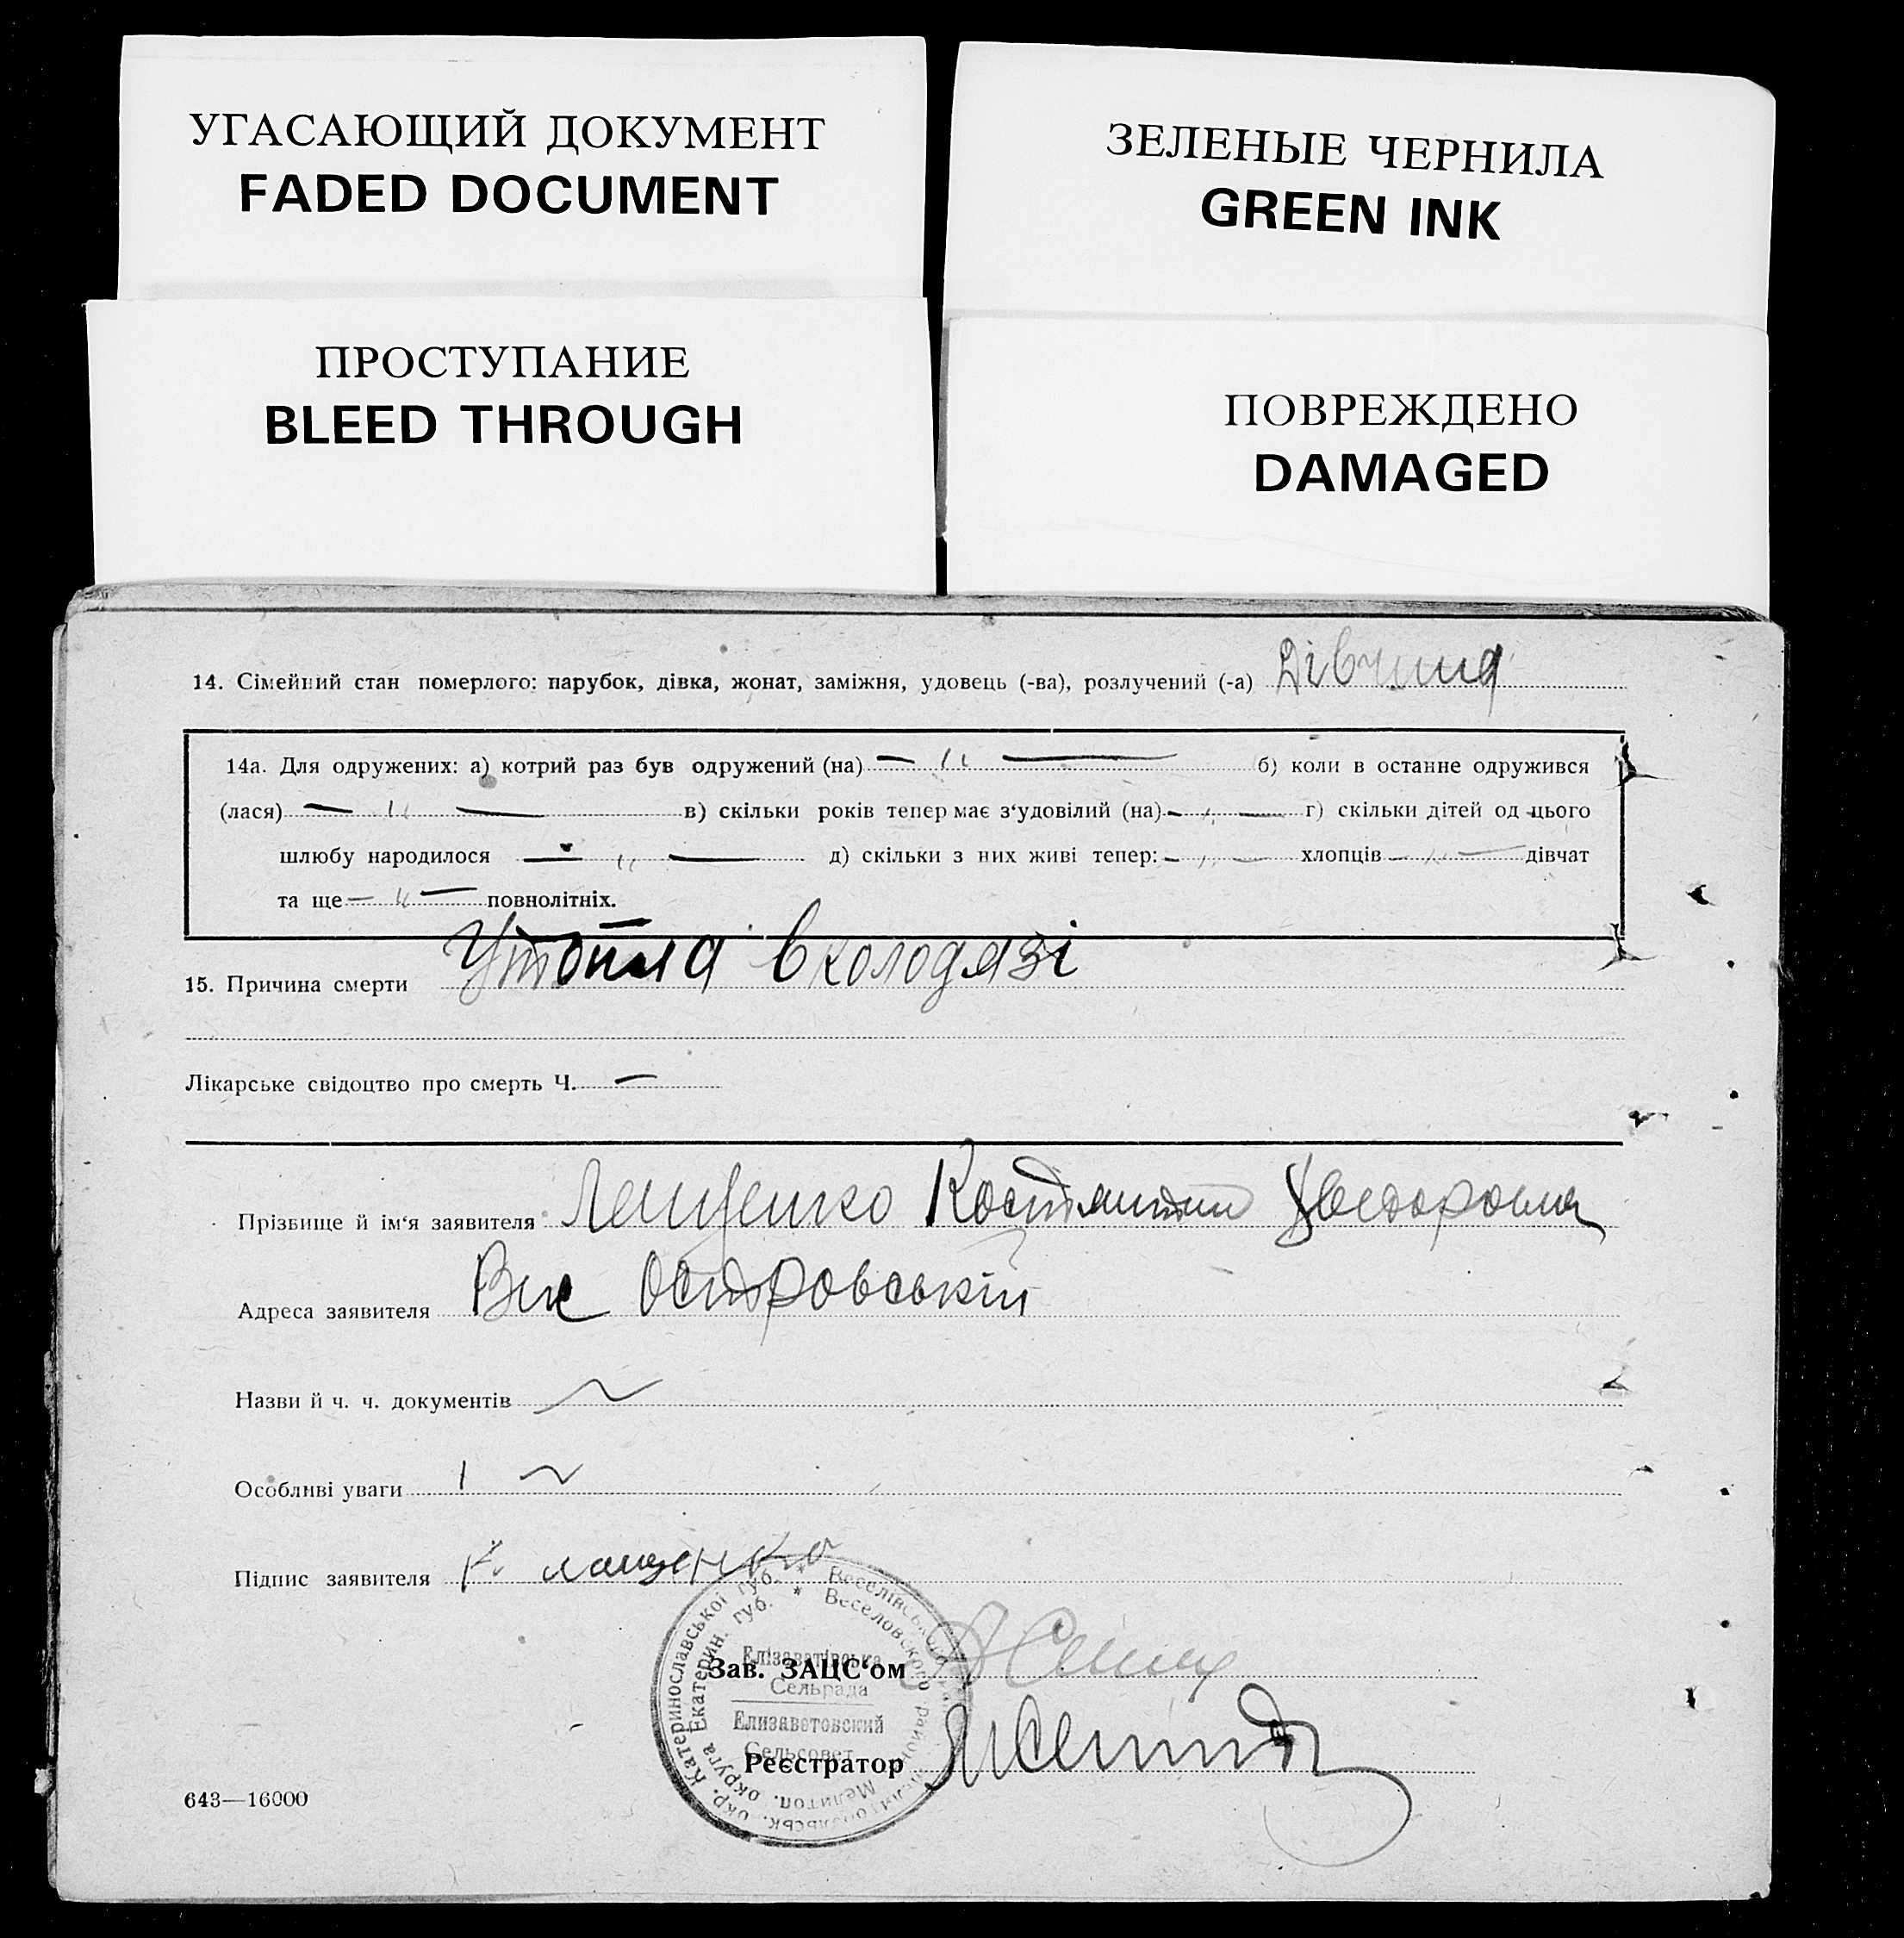 УГАСАЮЩИЙ ДОКУМЕНТ
FADED DOCUMENT
ЗЕЛЕНЫЕ ЧЕРНИЛА
GREEN INK
ПРОСТУПАНИЕ
BLEED THROUGH
ПОВРЕЖДЕНО
DAMAGED
14. Сімейний стан померлого: парубок, дівка, жонат, заміжня, удовець (-ва), розлучений (-а) Дівчина
14а. Для одружених: а) котрий раз був одружений (на) — " — б) коли в останнє одружився
(лася) — " — в) скільки років тепер має з'удовілий (на) — " — г) скільки дітей од цього
шлюбу народилося — " — д) скільки з них живі тепер: — " — хлопців — " — дівчат
та ще — " — повнолітніх.
15. Причина смерти Утопла в колодязі
Лікарське свідоцтво про смерть Ч. —
Прізвище й ім'я заявителя Лещенко Костянтин
Адреса заявителя Островський
Назви й ч. ч. документів ~
Особливі уваги ~
Підпис заявителя К. Лащенко
Зав. ЗАЦС'ом
Реєстратор
окр. Катеринославської губ. * Веселівського
округа Екатерин. губ. * Веселовского района Мелитоп.
Елізаветівська
Сельрада
Елизаветовский
Сельсовет
643—16000